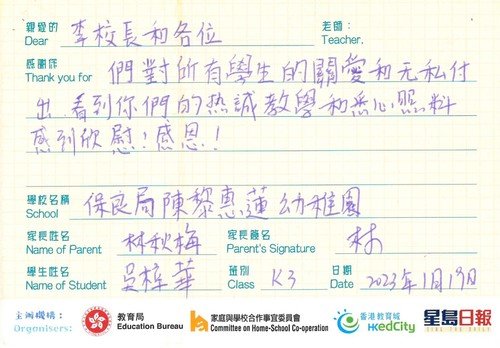 親愛的 李校長和各位 老師：
Dear Teacher.
感謝你 們對所有學生的關愛和无私付
Thank you for
出,看到你們的热誠教學和悉心照料
感到欣慰！感恩！
學校名稱 保良局陳黎惠蓮幼稚園
School
家長姓名 林秋梅 家長簽名 林
Name of Parent Parent's Signature
學生姓名 吳梓華 班別 K3 日期 2023年1月19日
Name of Student Class Date
主辦機構：
Organisers:
教育局
Education Bureau
家庭與學校合作事宜委員會
Committee on Home-School Co-operation
香港教育城
HKedCity
星島日報
SING TAO DAILY